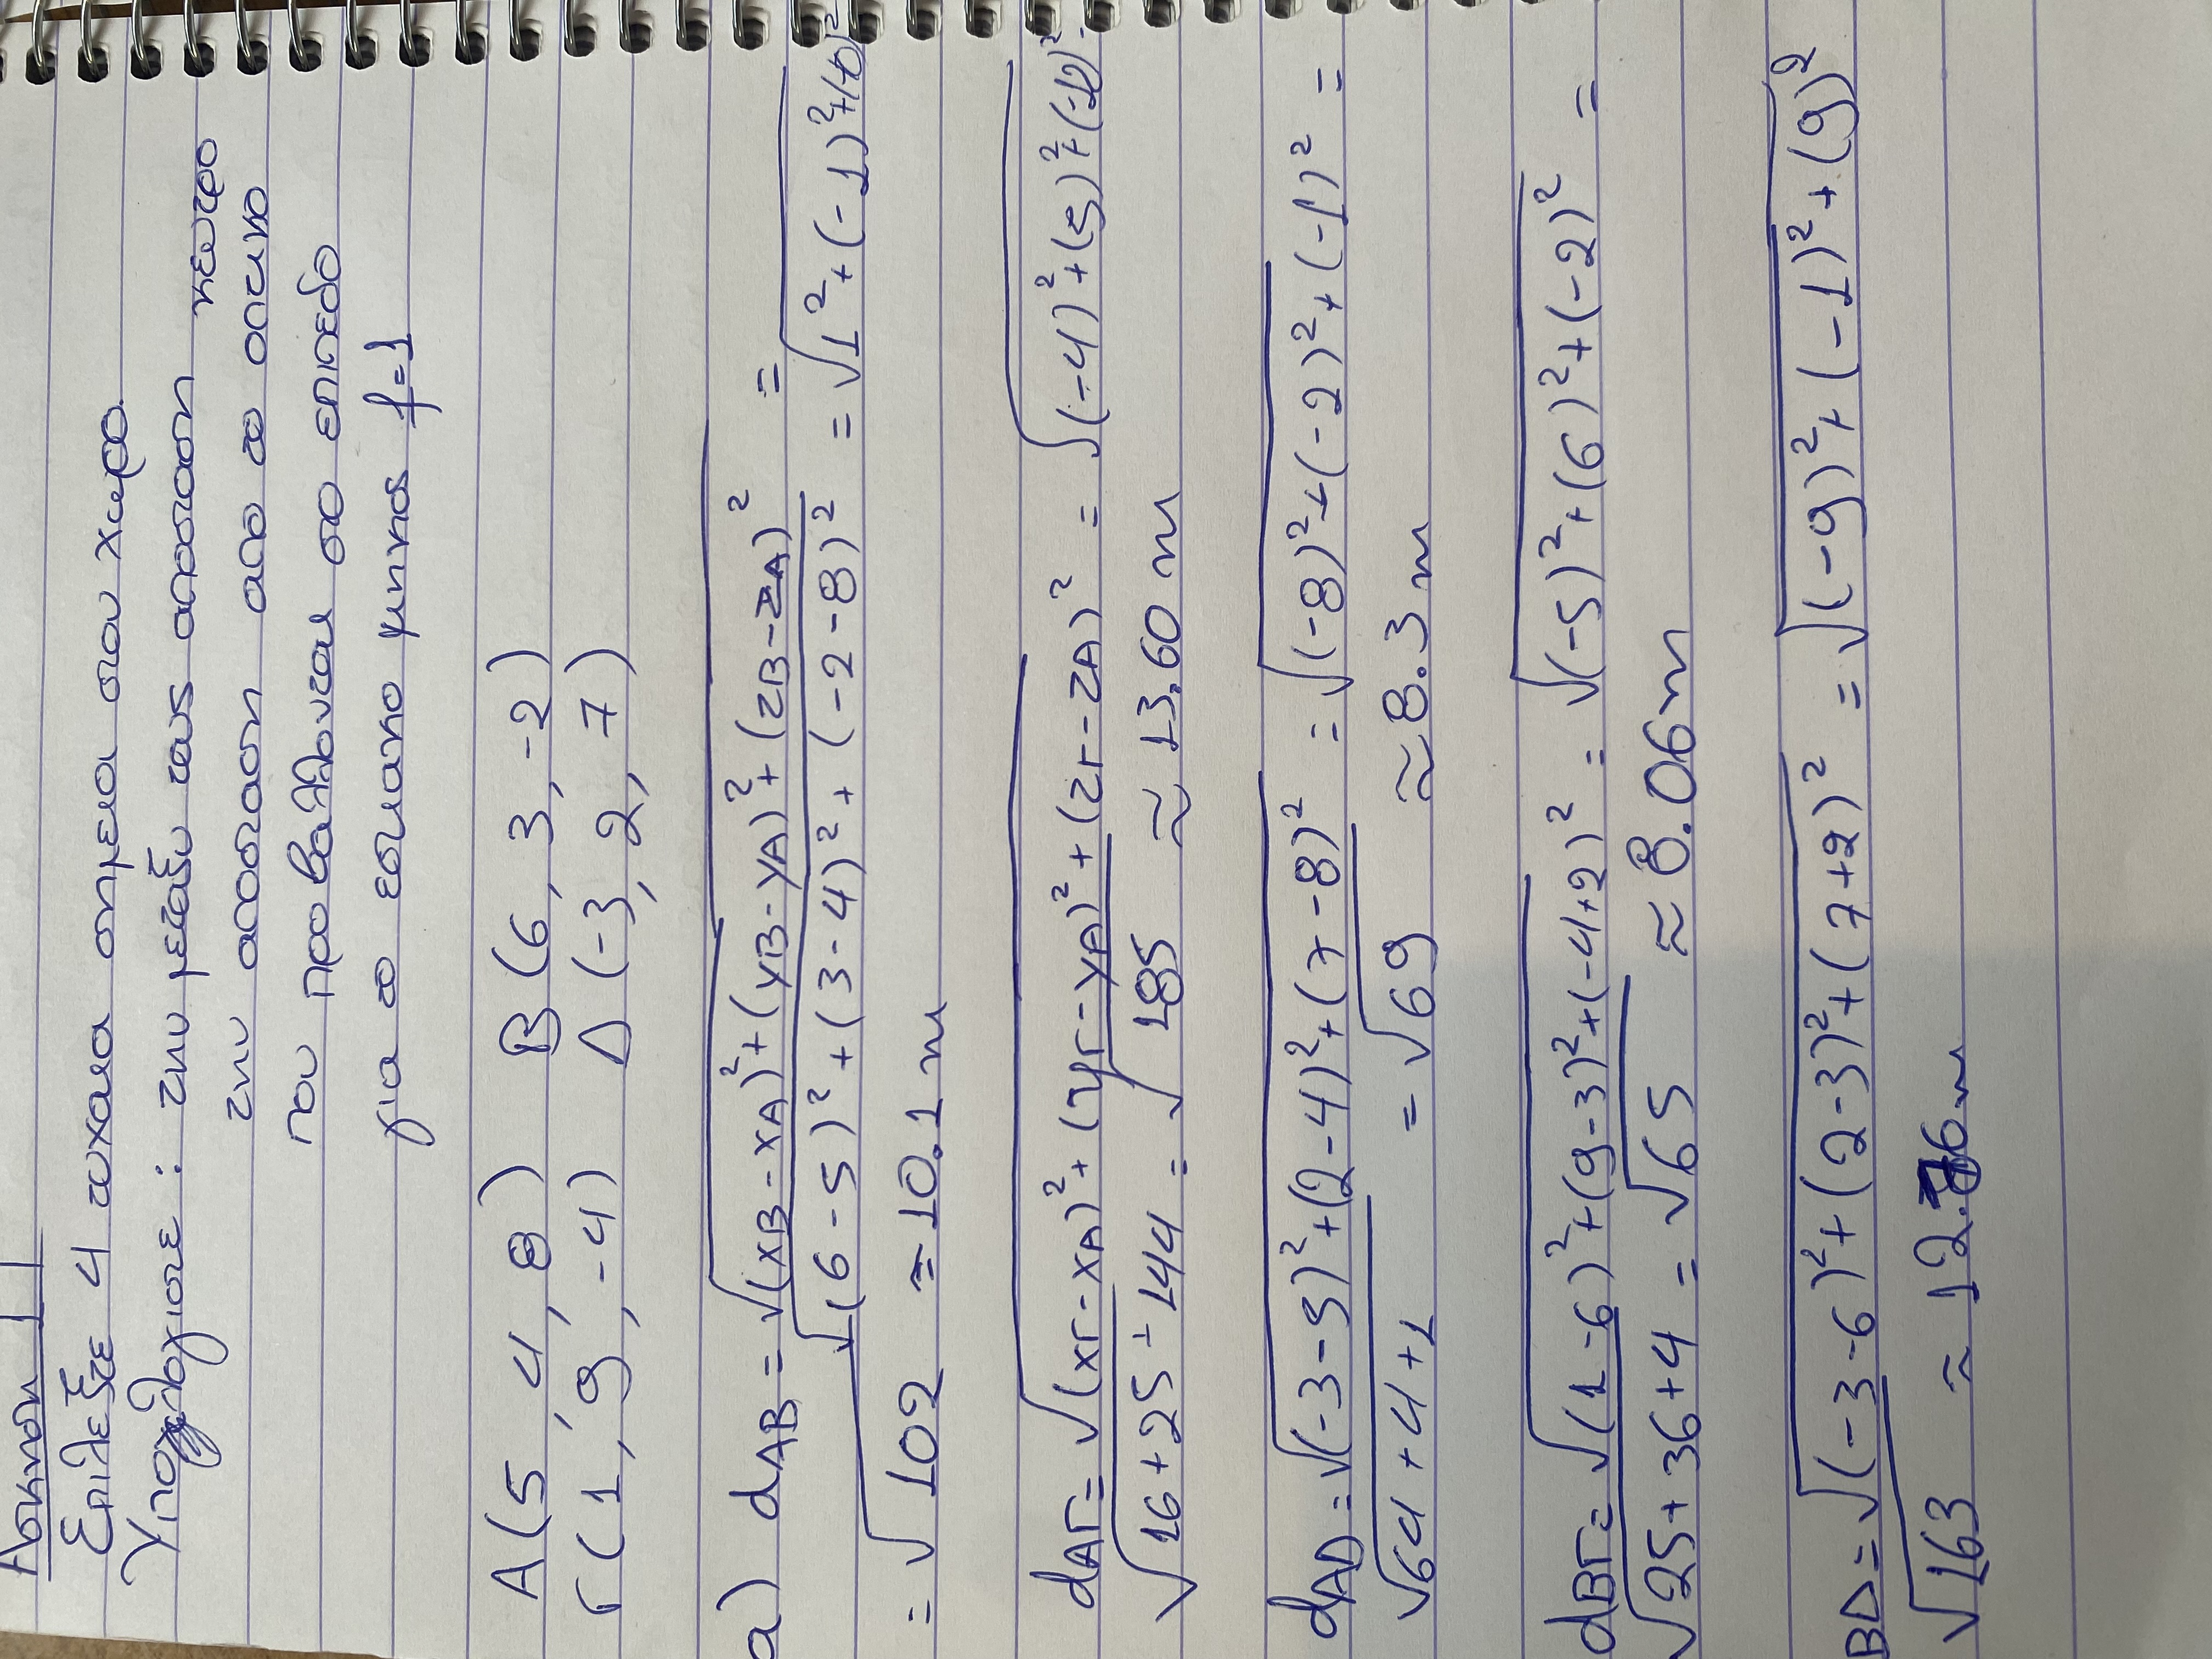 Ασκηση 11
Επιλεξτε 4 τυχαια σημεια στον χωρο.
Υπολογιστε : την μεταξυ τους αποσταση
την αποσταση απο το οπτικο κεντρο
που προβαλλονται στο επιπεδο
για το εστιακο μηκος f=1
A(5, 4, 8) B(6, 3, -2)
Γ(1, 9, -4) Δ(-3, 2, 7)
a) dAB = √(xB-xA)²+(yB-yA)²+(zB-zA)² =
√(6-5)²+(3-4)²+(-2-8)² = √1²+(-1)²+(-10)²
= √102 ≈ 10.1 m
dAΓ= √(xΓ-xA)²+(yΓ-yA)²+(zΓ-zA)² = √(-4)²+(5)²+(-12)² =
√16+25+144 = √185 ≈ 13.60 m
dAD = √(-3-5)²+(2-4)²+(7-8)² = √(-8)²+(-2)²+(-1)² =
√64+4+1 = √69 ≈ 8.3 m
dBΓ= √(1-6)²+(9-3)²+(-4+2)² = √(-5)²+(6)²+(-2)² =
√25+36+4 = √65 ≈ 8.06m
BΔ= √(-3-6)²+(2-3)²+(7+2)² = √(-9)²+(-1)²+(9)²
√163 ≈ 12.76m